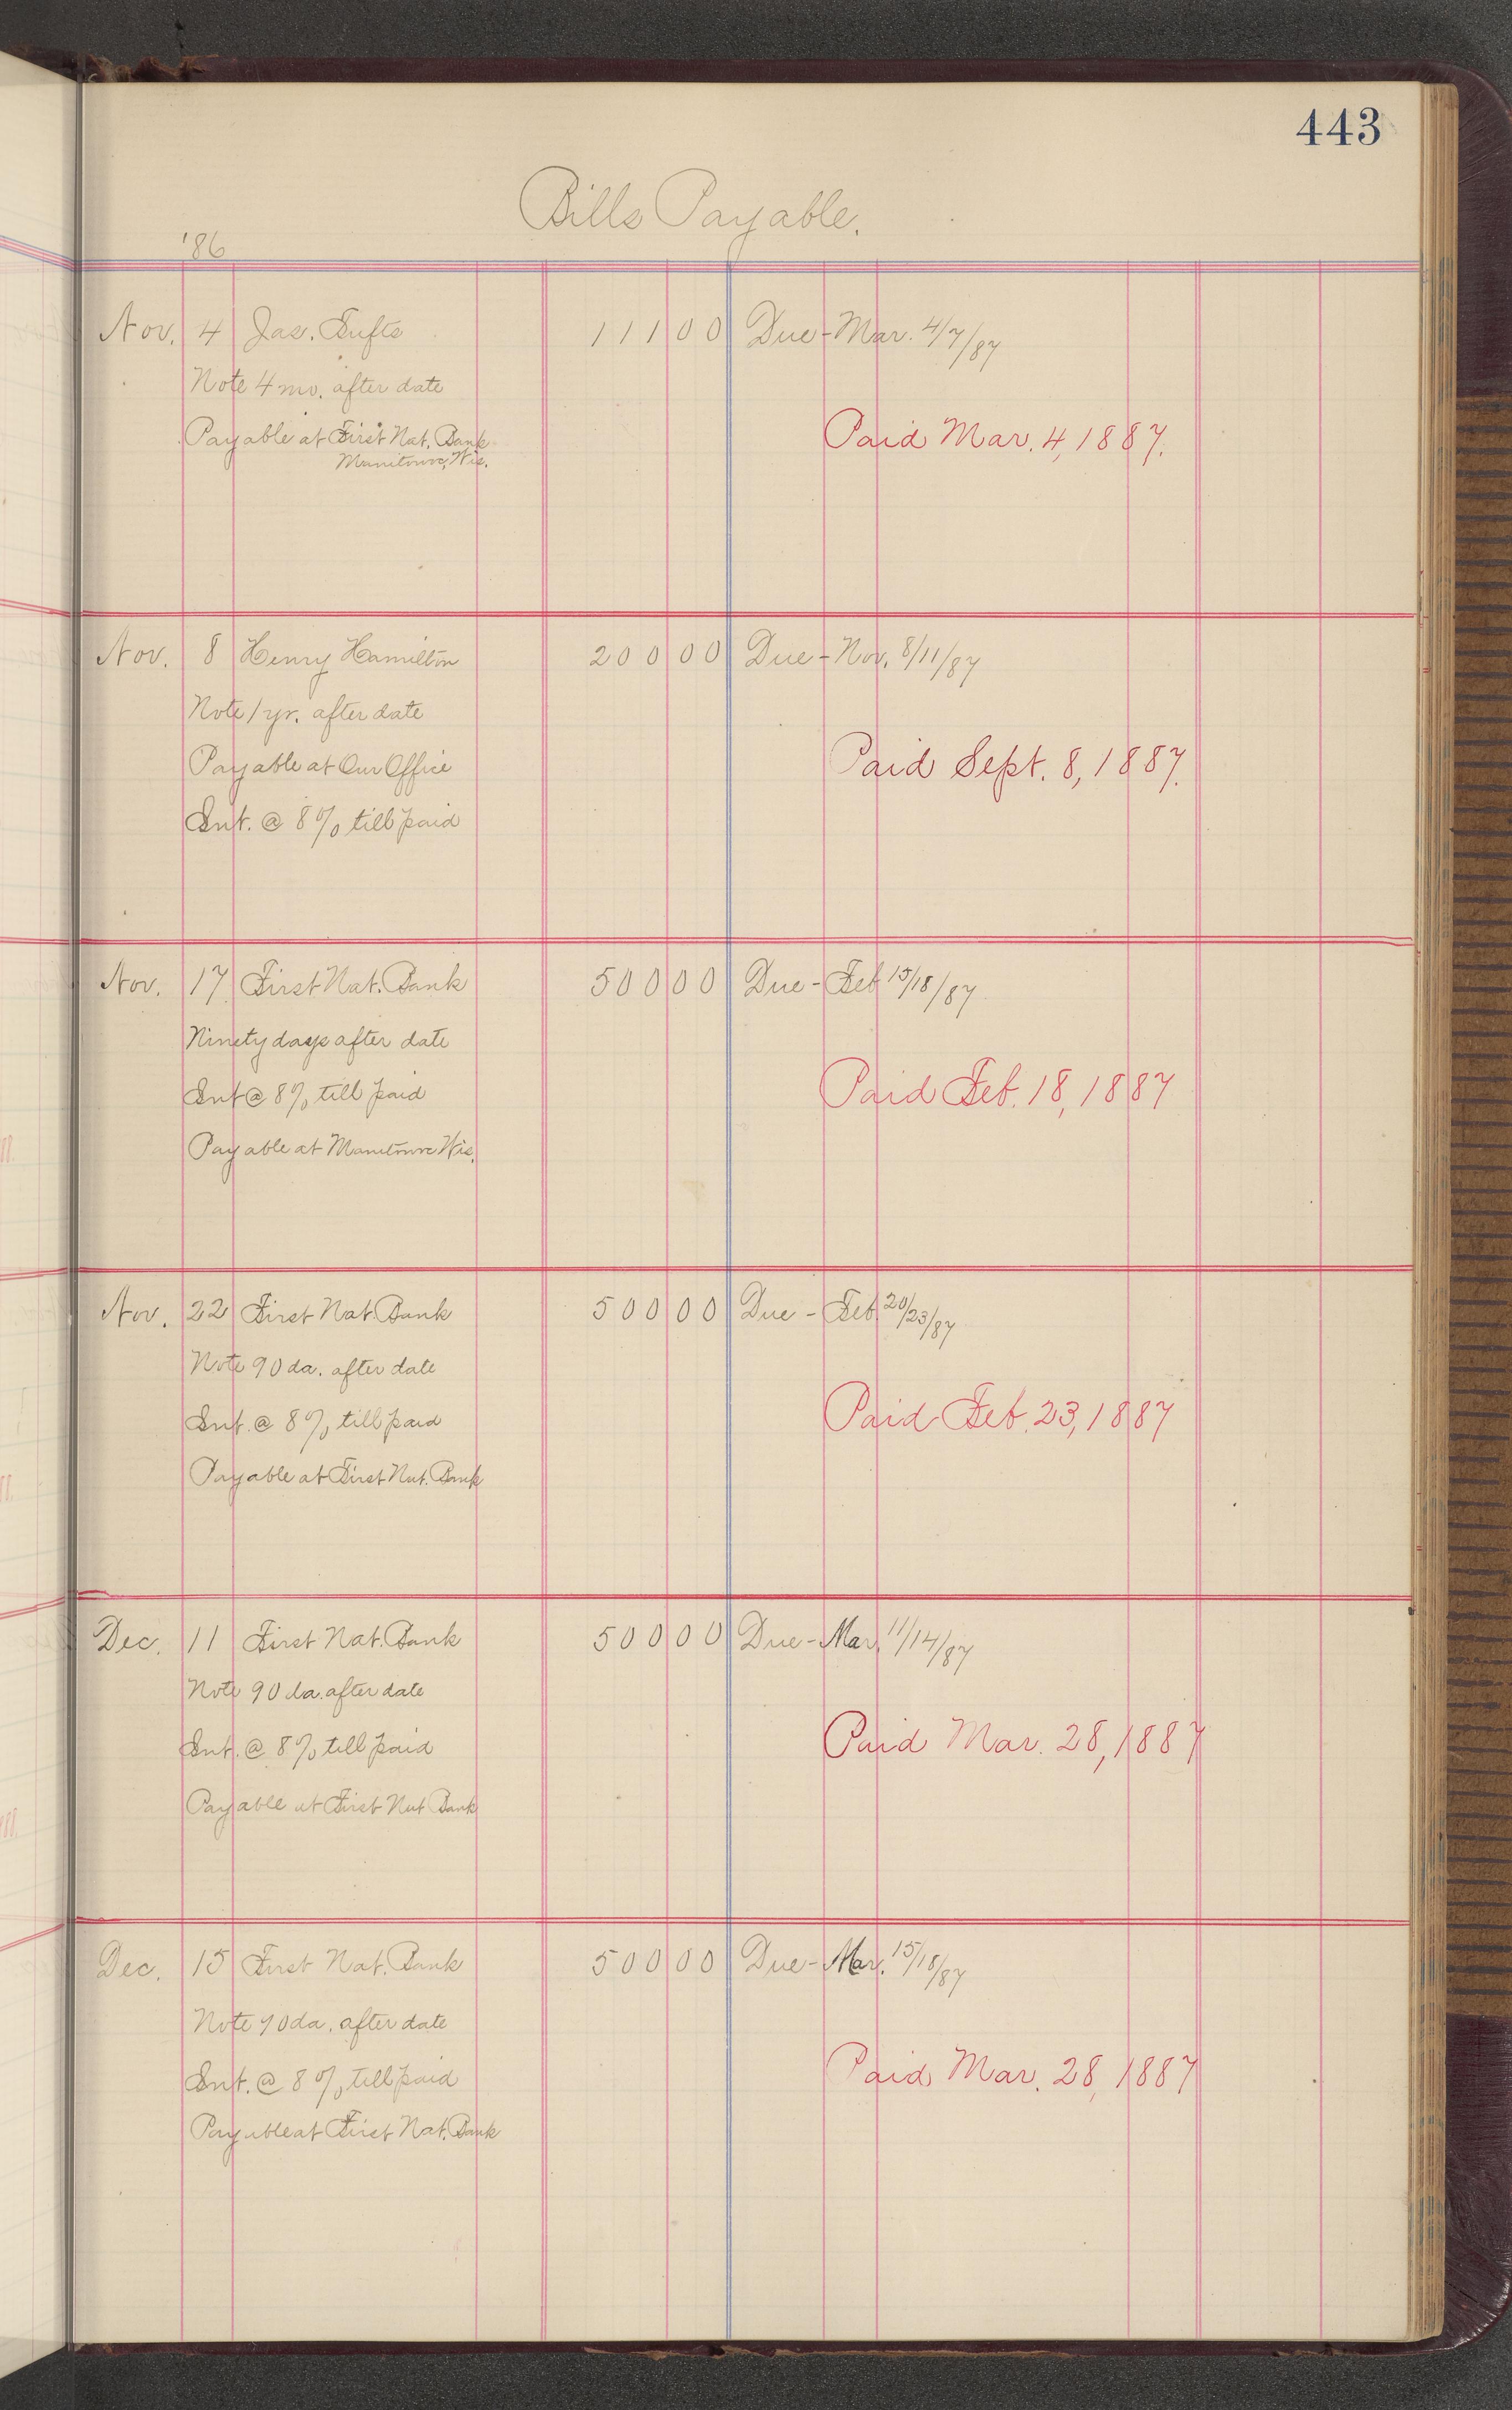 443
Bills Payable.
'86
Nov. 4 Jas. Tufts 111 00 Due - Mar. 4/7/87
Note 4 mo. after date
Payable at First Nat. Bank
Manitowoc, Wis.
Paid Mar. 4, 1887.
Nov. 8 Henry Hamilton 200 00 Due - Nov. 8/11/87
Note 1 yr. after date
Payable at Our Office
Paid Sept. 8, 1887.
Int. @ 8% till paid
Nov. 17 First Nat. Bank 500 00 Due - Feb 15/18/87
Ninety days after date
Int @ 8% till paid
Paid Feb. 18, 1887
Payable at Manitowoc Wis.
Nov. 22 First Nat. Bank 500 00 Due - Feb. 20/23/87
Note 90 da. after date
Int. @ 8% till paid
Paid Feb. 23, 1887
Payable at First Nat. Bank
Dec. 11 First Nat. Bank 500 00 Due - Mar. 11/14/87
Note 90 da. after date
Int. @ 8% till paid
Paid Mar. 28, 1887
Payable at First Nat Bank
Dec. 15 First Nat. Bank 500 00 Due - Mar. 15/18/87
Note 90 da. after date
Int. @ 8% till paid
Paid Mar. 28, 1887
Payable at First Nat. Bank